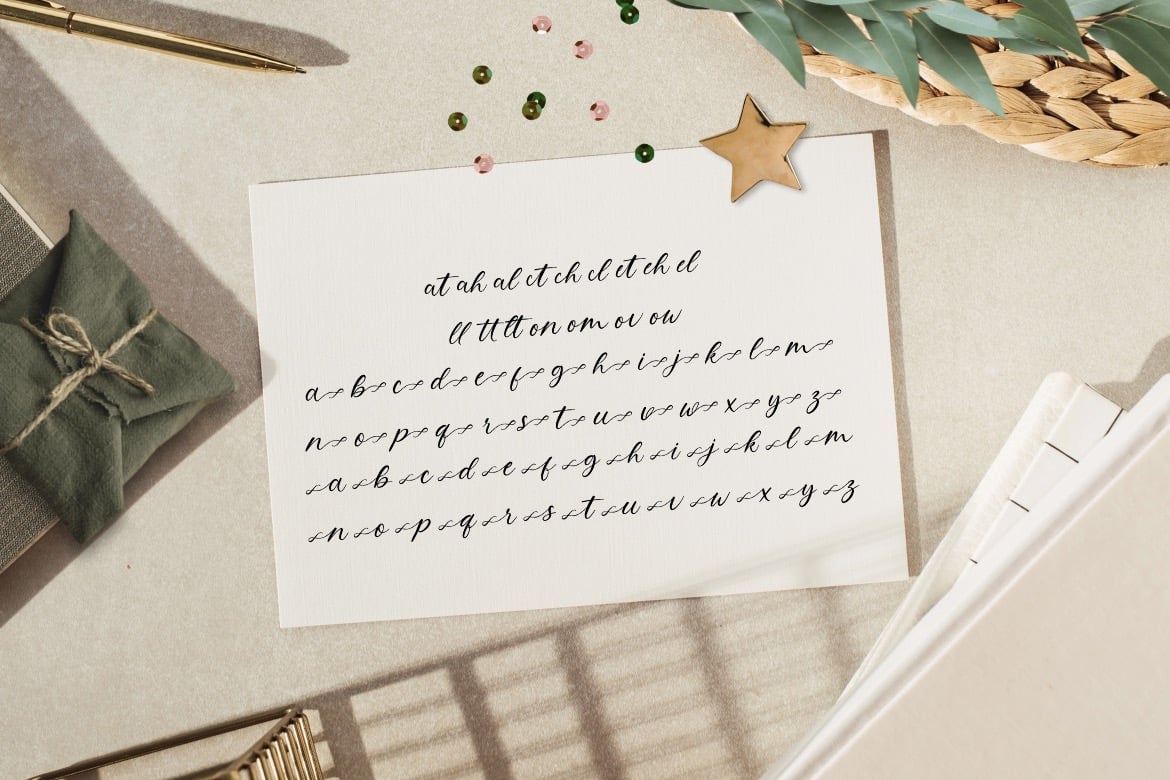 at ah al ct ch cl et eh el
ll tt lt on om ov ow
a b c d e f g h i j k l m
n o p q r s t u v w x y z
a b c d e f g h i j k l m
n o p q r s t u v w x y z